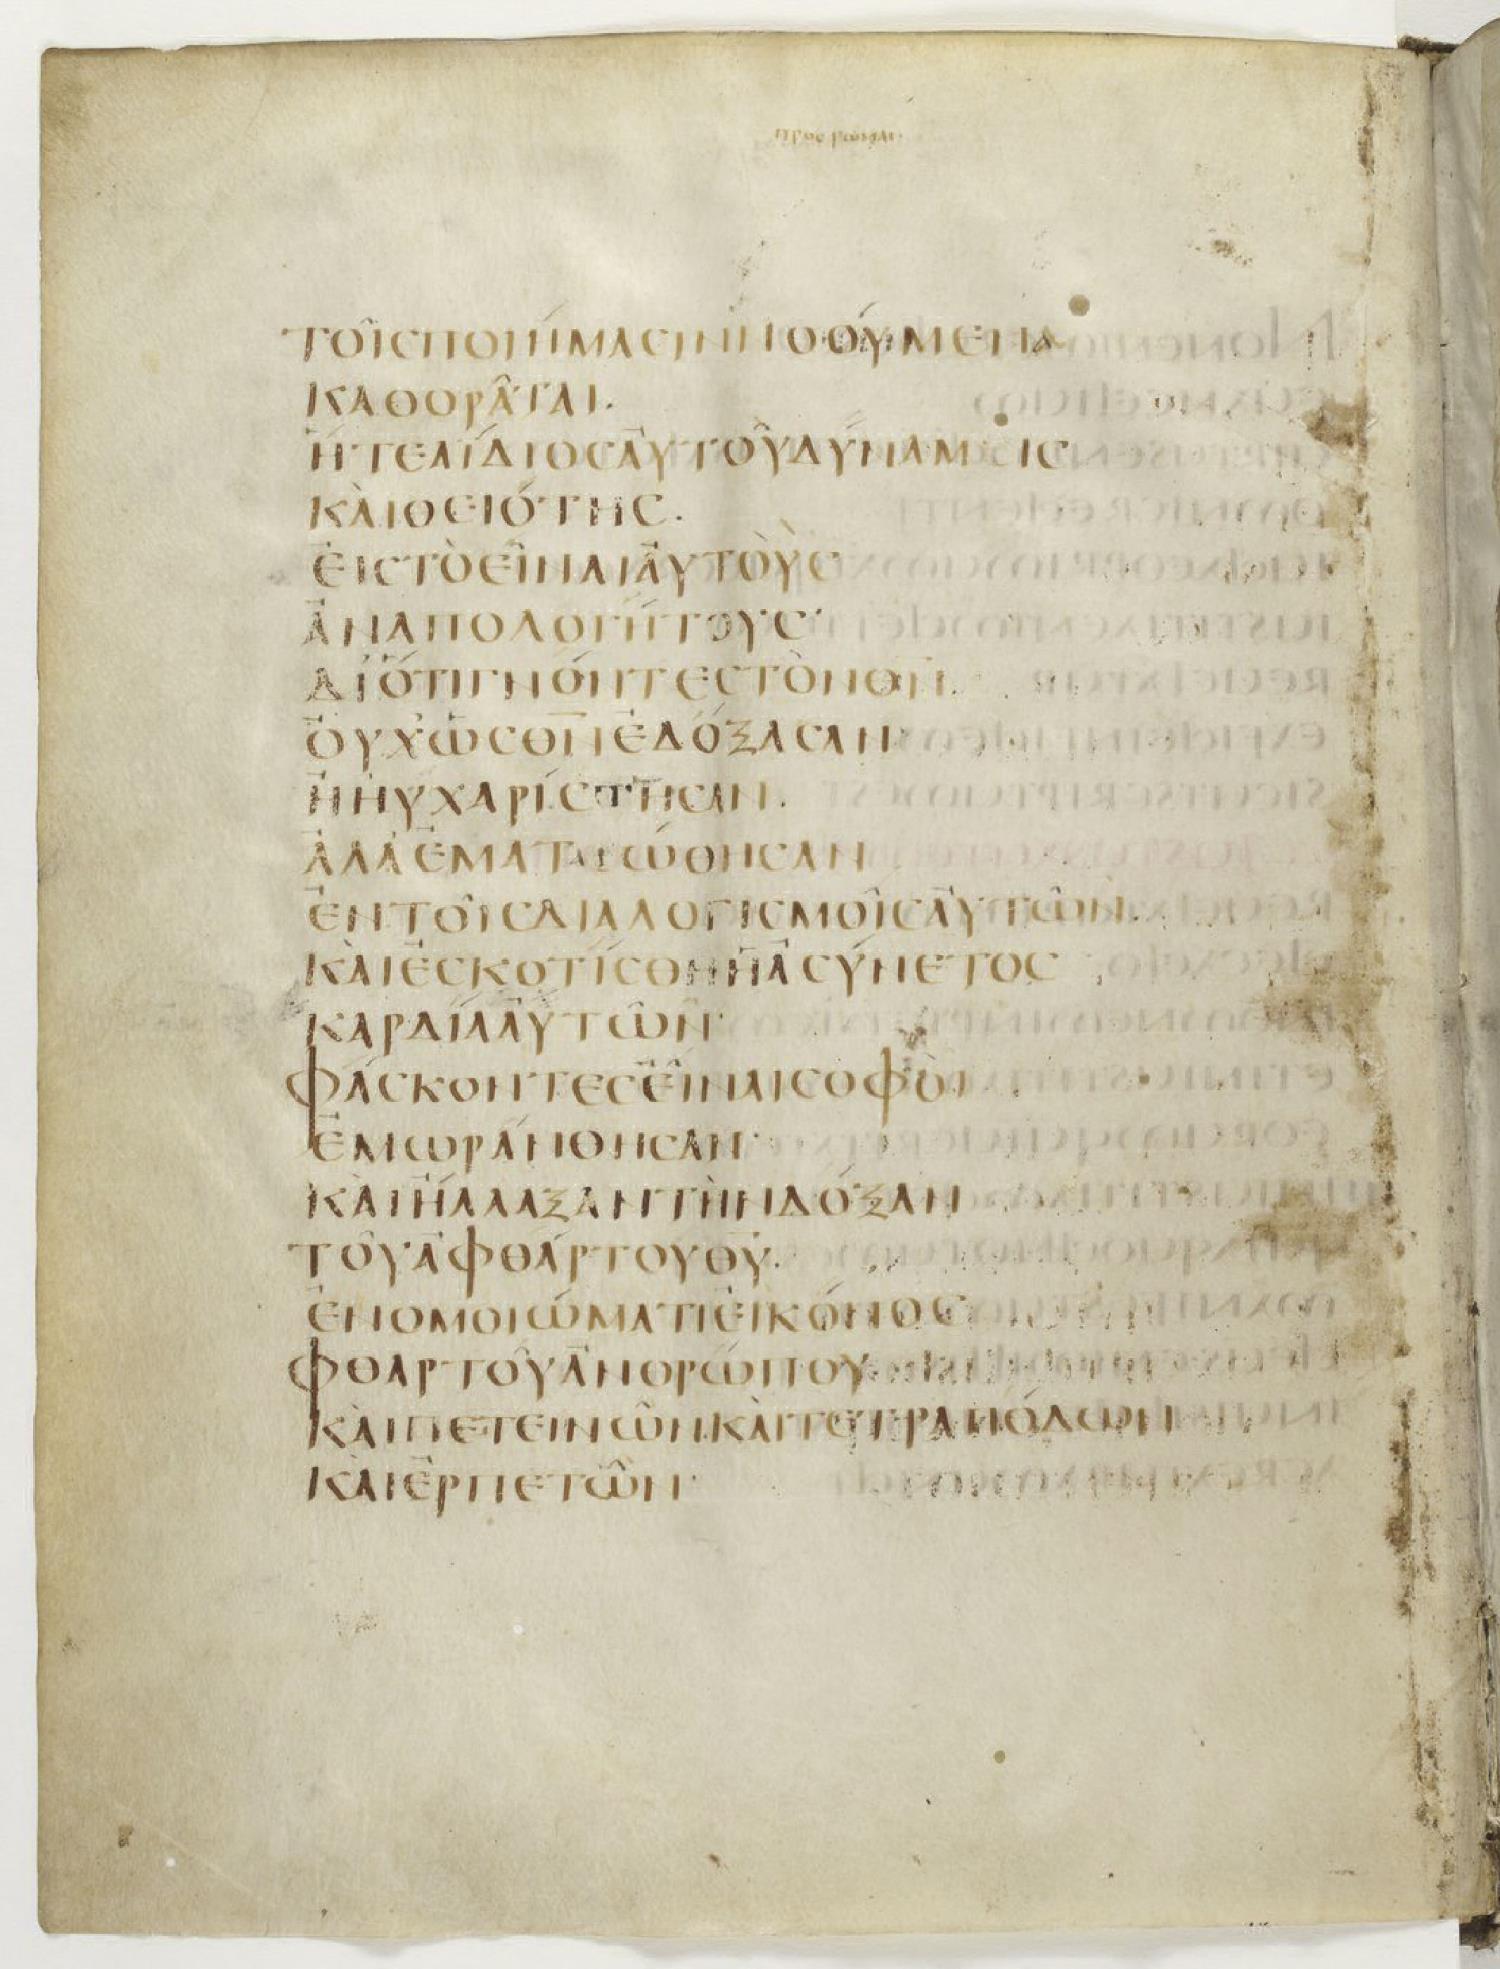 προς ρωμαι
ΤΟΙΣΠΟΙΗΜΑΣΙΝΝΟΟΥΜΕΝΑ
ΚΑΘΟΡΑΤΑΙ.
ΗΤΕΑΙΔΙΟΣΑΥΤΟΥΔΥΝΑΜΙΣ
ΚΑΙΘΕΙΟΤΗΣ.
ΕΙΣΤΟΕΙΝΑΙΑΥΤΟΥΣ
ΑΝΑΠΟΛΟΓΗΤΟΥΣ
ΔΙΟΤΙΓΝΟΝΤΕΣΤΟΝΘΝ.
ΟΥΧΩΣΘΝΕΔΟΞΑΣΑΝ
ΗΗΥΧΑΡΙΣΤΗΣΑΝ.
ΑΛΑΕΜΑΤΑΙΩΘΗΣΑΝ
ΕΝΤΟΙΣΔΙΑΛΟΓΙΣΜΟΙΣΑΥΤΩΝ.
ΚΑΙΕΣΚΟΤΙΣΘΗΗΑΣΥΝΕΤΟΣ
ΚΑΡΔΙΑΑΥΤΩΝ
ΦΑΣΚΟΝΤΕΣΕΙΝΑΙΣΟΦΟΙ
ΕΜΩΡΑΝΘΗΣΑΝ
ΚΑΙΗΛΑΑΞΑΝΤΗΝΔΟΞΑΝ
ΤΟΥΑΦΘΑΡΤΟΥΘΥ.
ΕΝΟΜΟΙΩΜΑΤΙΕΙΚΟΝΟΣ
ΦΘΑΡΤΟΥΑΝΘΡΩΠΟΥ
ΚΑΙΠΕΤΕΙΝΩΝΚΑΙΤΕΤΡΑΠΟΔΩΝ
ΚΑΙΕΡΠΕΤΩΝ